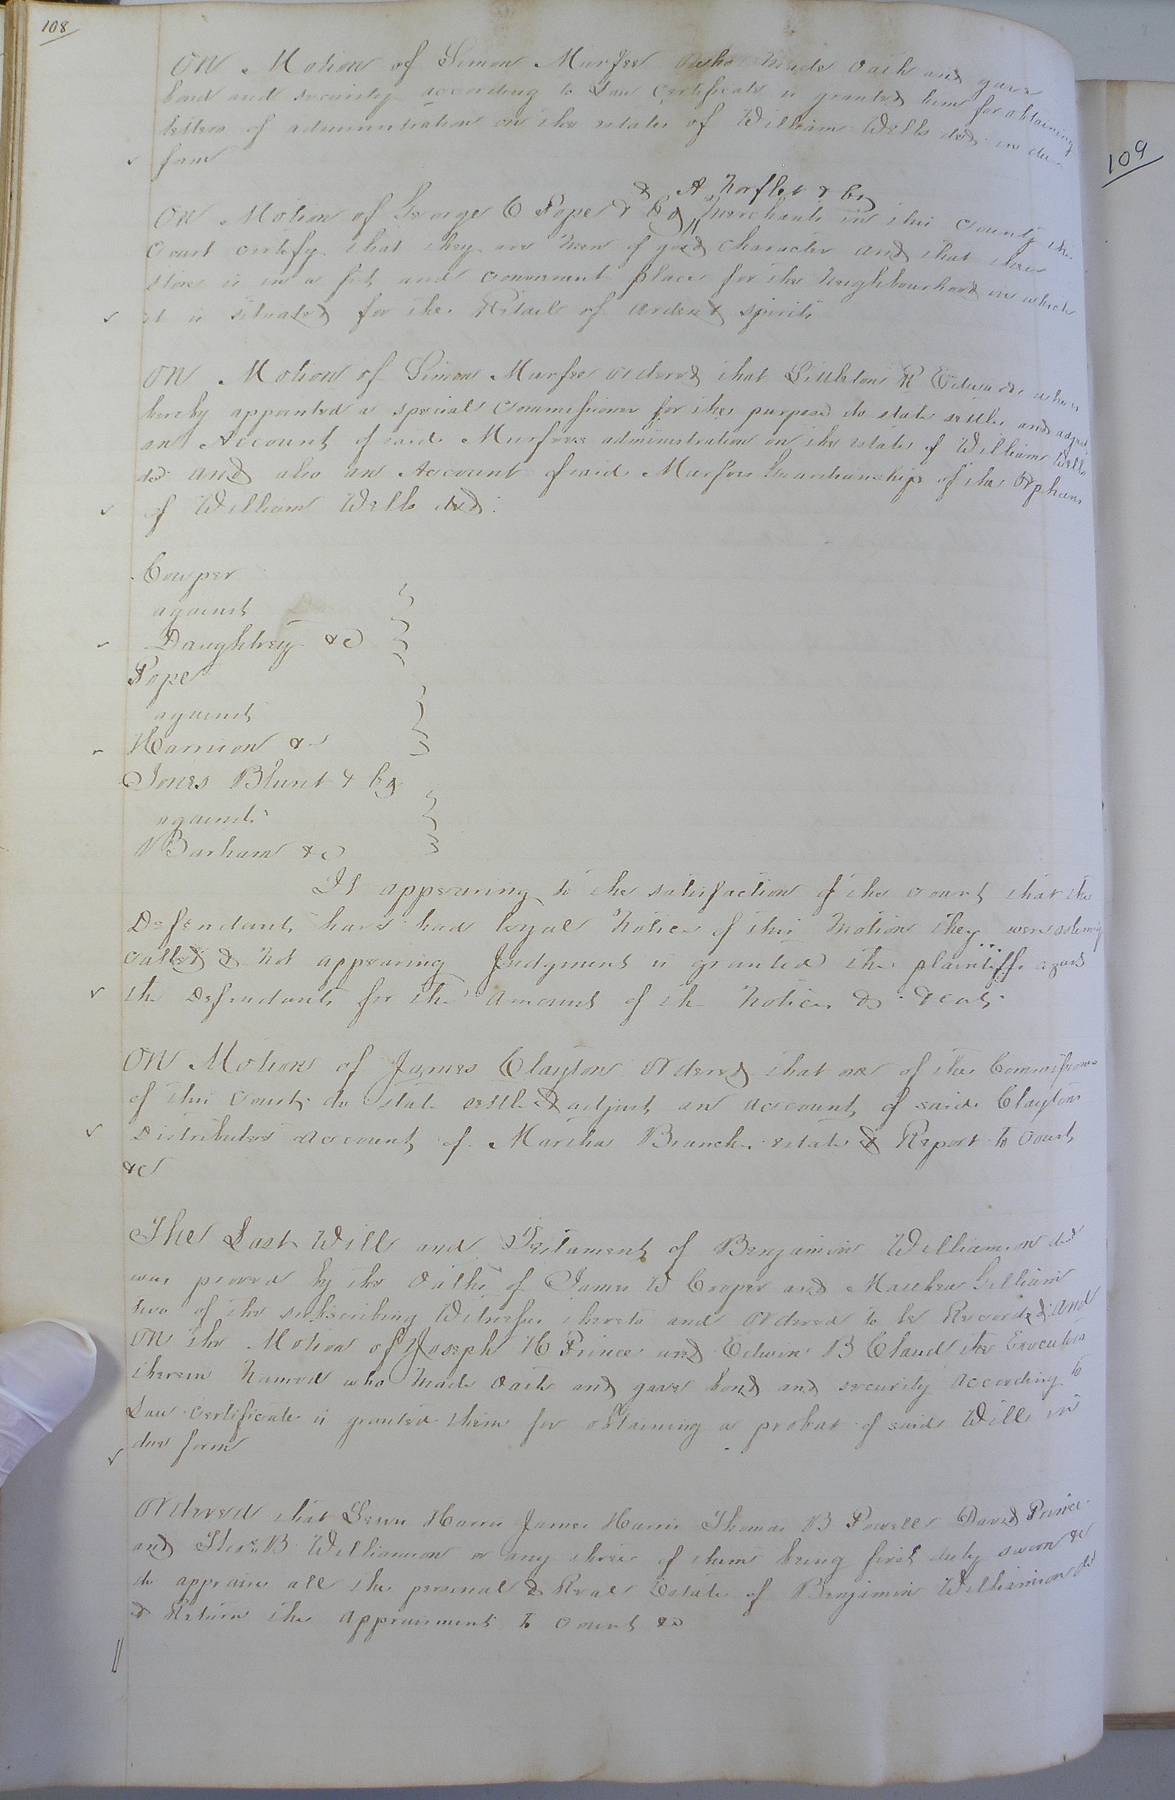 108
ON Motion of Simon Murfee who made oath and gave
bond and security according to Law Certificate is granted him for obtaining
letters of administration on the estate of William Wells decd in due
form
& A Norflet & Co
ON Motion of George C Pope & Co Merchants in this County the
Court certify that they are men of good Character and that their
store is in a fit and convenient place for the Neighbourhood in which
it is situated for the Retail of ardent spirits
ON Motion of Simon Murfee ordered that Littleton R Edwards who is
hereby appointed a special Commissioner for the purpose do state settle and adjust
an Account of said Murfees administration on the estate of William Wells
decd and also an Account of said Murfees Guardianship of the Orphans
of William Wells decd.
Cowper
against
Daughtrey &c
Pope
against
Harrison &c
Jones Blunt & Co
against
Barham &c
It appearing to the satisfaction of the court that the
Defendants have had legal Notice of this Motion they were solemnly
called & Not appearing Judgment is granted the plaintiffs against
the Defendants for the amount of the Notice & Costs
ON Motion of James Clayton Ordered that one of the Commissioners
of this Court do state settle & adjust an account of said Clayton
Distributers account of Martha Branch estate & Report to Court
&c
The Last Will and Testament of Benjamin Williamson decd
was proved by the Oaths of James W Cooper and Matthew Gilliam
two of the subscribing Witnesses thereto and ordered to be Recorded. And
ON the Motion of Joseph H Prince and Edwin B Claud the Executors
therein Named who made oath and gave bond and security According to
Law Certificate is granted them for obtaining a probat of said Will in
due form
Ordered that Lewis Harris James Harris Thomas B Powell David Prince
and Thos B Williamson or any three of them being first duly sworn &c
do appraise all the personal & Real Estate of Benjamin Williamson decd
& Return the appraisment to Court &c
109